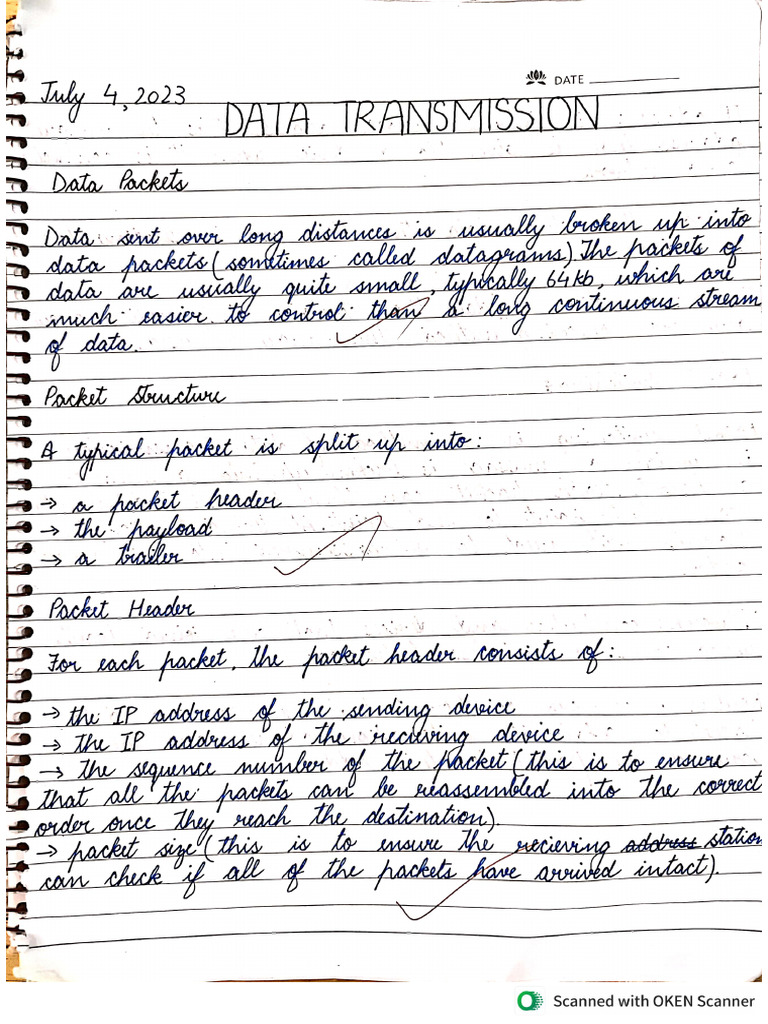 DATE
July 4, 2023
DATA TRANSMISSION
Data Packets
Data sent over long distances is usually broken up into
data packets (sometimes called datagrams) The packets of
data are usually quite small, typically 64kb, which are
much easier to control than a long continuous stream
of data.
Packet Structure
A typical packet is split up into:
→ a packet header
→ the payload
→ a trailer
Packet Header
For each packet, the packet header consists of:
→ the IP address of the sending device
→ the IP address of the recieving device
→ the sequence number of the packet (this is to ensure
that all the packets can be reassembled into the correct
order once they reach the destination).
→ packet size (this is to ensure the recieving address station
can check if all of the packets have arrived intact).
Scanned with OKEN Scanner